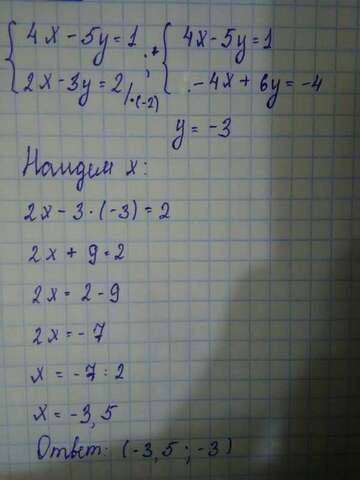 4x - 5y = 1 ; + 4x - 5y = 1
2x - 3y = 2 /·(-2) -4x + 6y = -4
y = -3
Найдем x:
2x - 3 · (-3) = 2
2x + 9 = 2
2x = 2 - 9
2x = -7
x = -7 : 2
x = -3,5
Ответ: (-3,5 ; -3)